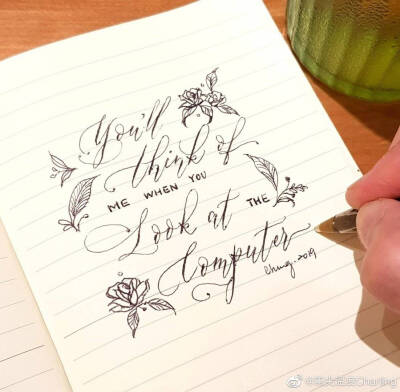 You'll
think of
ME WHEN YOU
Look at THE
Computer
Chung. 2019